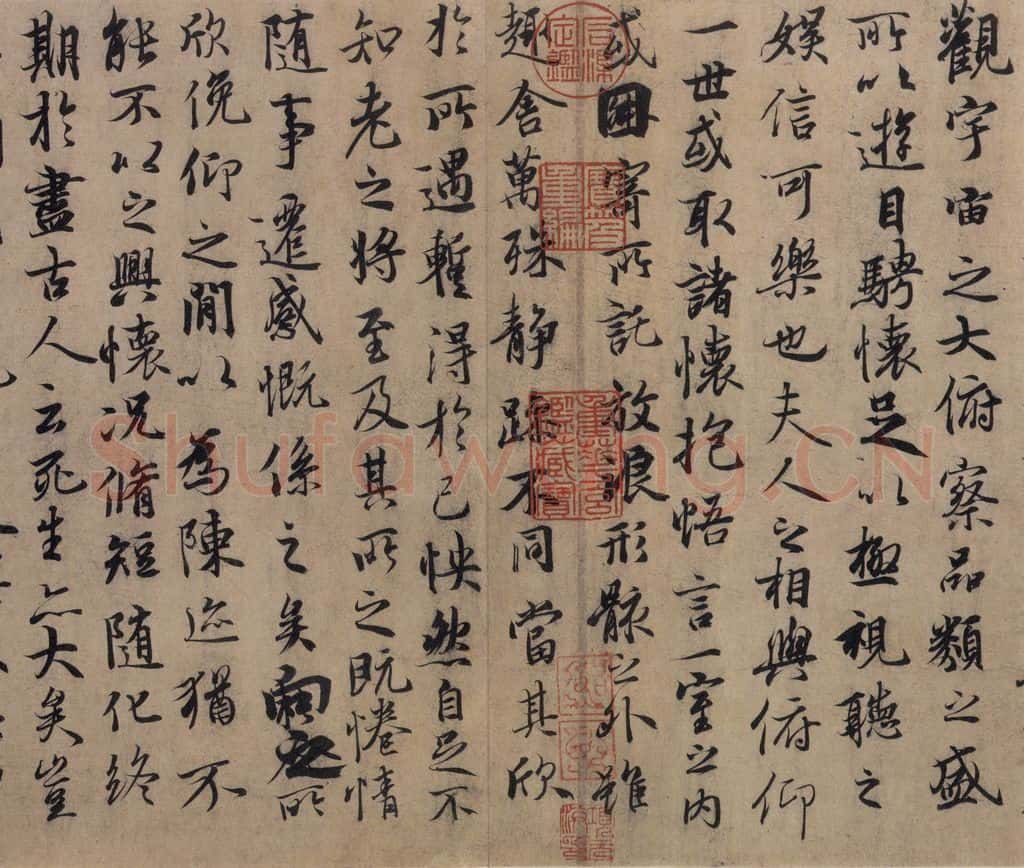 觀宇宙之大俯察品類之盛
所以遊目騁懷足以極視聽之
娛信可樂也夫人之相與俯仰
一世或取諸懷抱悟言一室之內
或因寄所託放浪形骸之外雖
趣舍萬殊靜躁不同當其欣
於所遇暫得於己怏然自足不
知老之將至及其所之既惓情
隨事遷感慨係之矣向之所
欣俛仰之間以為陳迹猶不
能不以之興懷況脩短隨化終
期於盡古人云死生亦大矣豈
Shufawang.CN